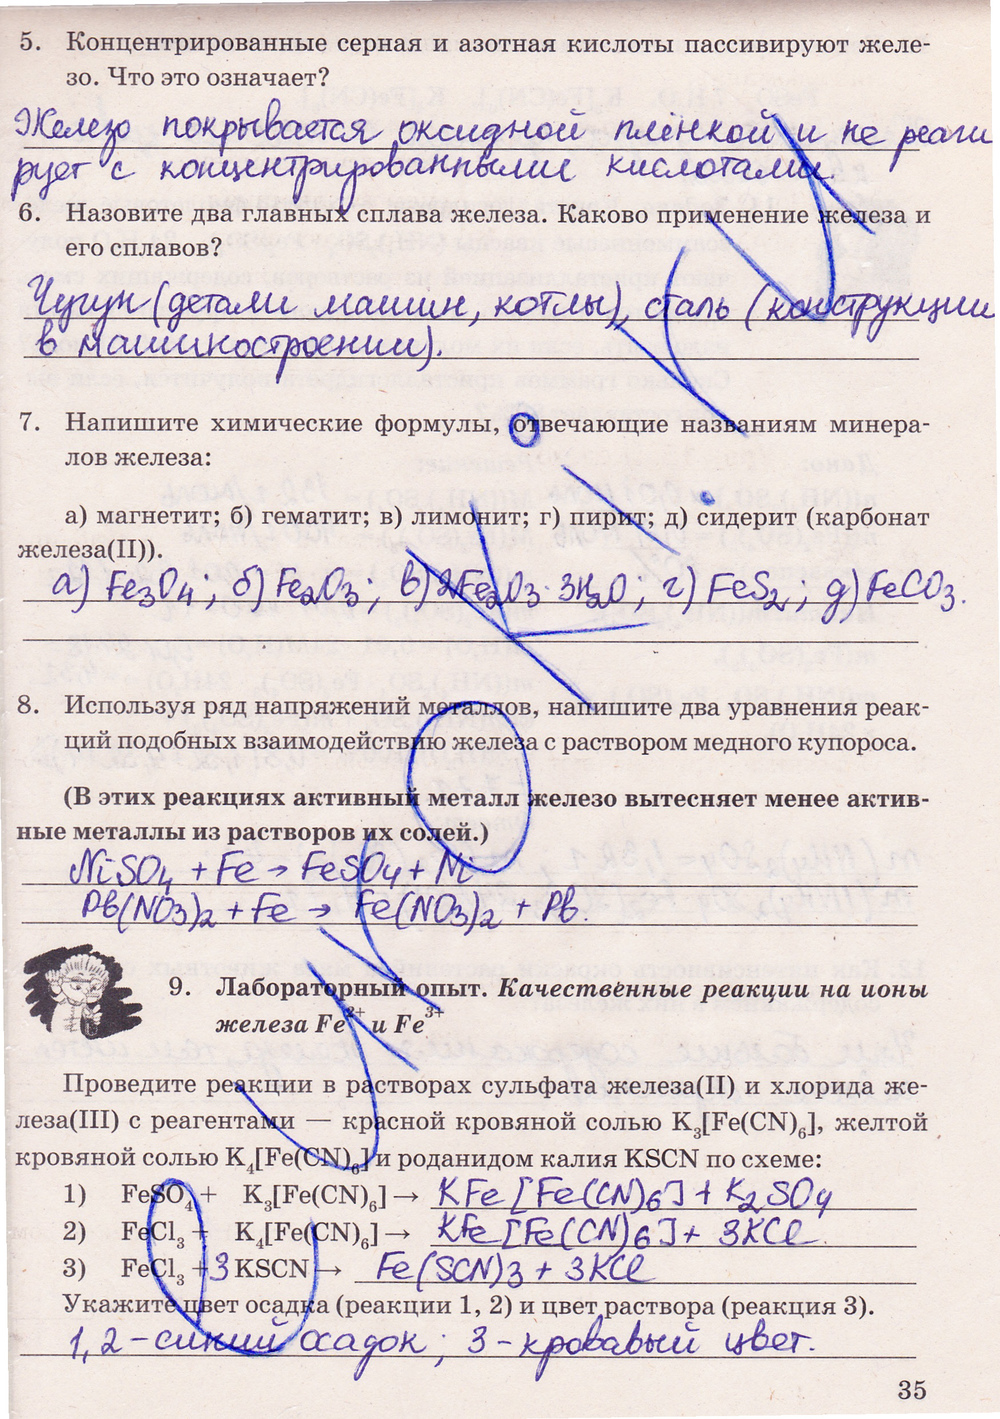 5. Концентрированные серная и азотная кислоты пассивируют желе-
зо. Что это означает?
Железо покрывается оксидной плёнкой и не реаги
рует с концентрированными кислотами.
6. Назовите два главных сплава железа. Каково применение железа и
его сплавов?
Чугун (детали машин, котлы), сталь (конструкции
в машиностроении).
7. Напишите химические формулы, отвечающие названиям минера-
лов железа:
а) магнетит; б) гематит; в) лимонит; г) пирит; д) сидерит (карбонат
железа(II)).
а) Fe3O4; б) Fe2O3; в) 2Fe2O3·3H2O; г) FeS2; д) FeCO3.
8. Используя ряд напряжений металлов, напишите два уравнения реак-
ций подобных взаимодействию железа с раствором медного купороса.
(В этих реакциях активный металл железо вытесняет менее актив-
ные металлы из растворов их солей.)
NiSO4 + Fe → FeSO4 + Ni
Pb(NO3)2 + Fe → Fe(NO3)2 + Pb.
9. Лабораторный опыт. Качественные реакции на ионы
железа Fe2+ и Fe3+
Проведите реакции в растворах сульфата железа(II) и хлорида же-
леза(III) с реагентами — красной кровяной солью K3[Fe(CN)6], желтой
кровяной солью K4[Fe(CN)6] и роданидом калия KSCN по схеме:
1) FeSO4 + K3[Fe(CN)6] → KFe[Fe(CN)6] + K2SO4
2) FeCl3 + K4[Fe(CN)6] → KFe[Fe(CN)6] + 3KCl.
3) FeCl3 + 3KSCN → Fe(SCN)3 + 3KCl
Укажите цвет осадка (реакции 1, 2) и цвет раствора (реакция 3).
1, 2 - синий осадок; 3 - кровавый цвет.
35